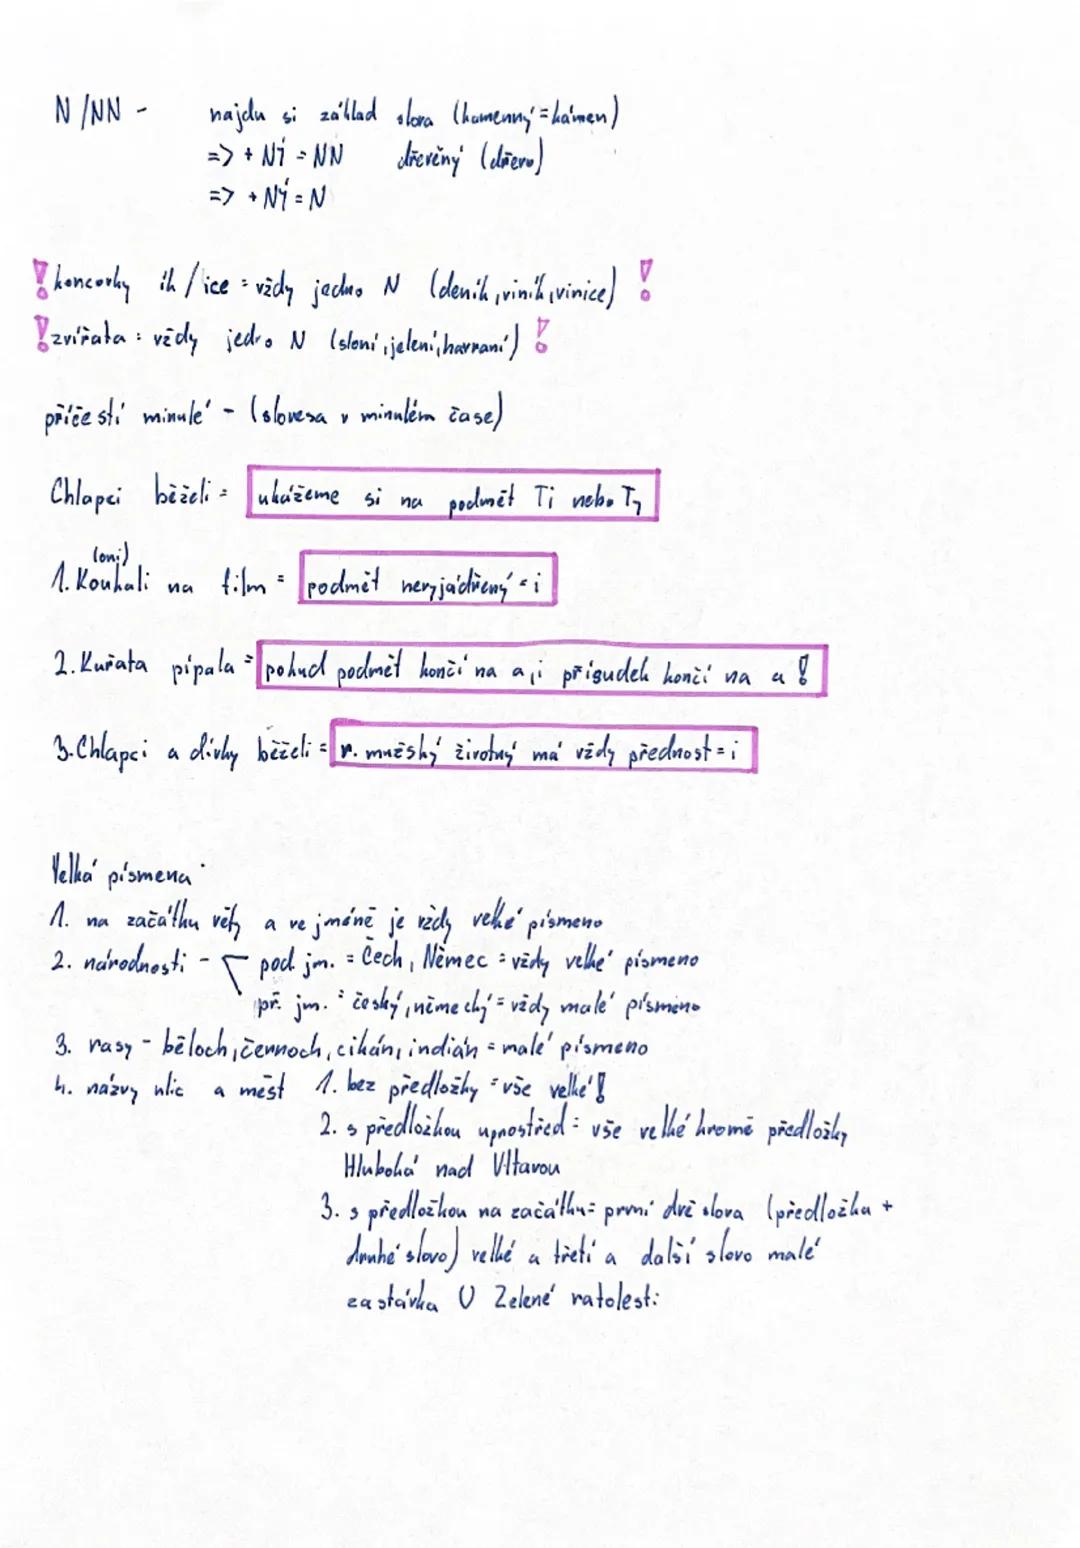 N/NN - najdu si základ slova (kamenný = kámen)
=> + NÍ = NN dřevěný (dřevo)
=> + NÝ = N
! koncovky ík / ice = vždy jedno N (deník, viník, vinice) !
! zvířata = vždy jedno N (sloní, jelení, havraní) !
příčestí minulé - (slovesa v minulém čase)
Chlapci běželi = ukážeme si na podmět Ti nebo Ty
(oni)
1. Koukali na film = podmět nevyjádřený = i
2. Kuřata pípala = pokud podmět končí na a, i přísudek končí na a !
3. Chlapci a dívky běželi = r. mužský životný má vždy přednost = i
Velká písmena
1. na začátku věty a ve jméně je vždy velké písmeno
2. národnosti - pod. jm. = Čech, Němec = vždy velké písmeno
př. jm. = český, německý = vždy malé písmeno
3. rasy - běloch, černoch, cikán, indián = malé písmeno
4. názvy ulic a měst 1. bez předložky = vše velké !
2. s předložkou uprostřed = vše velké kromě předložky
Hluboká nad Vltavou
3. s předložkou na začátku = první dvě slova (předložka +
druhé slovo) velké a třetí a další slovo malé
zastávka U Zelené ratolesti